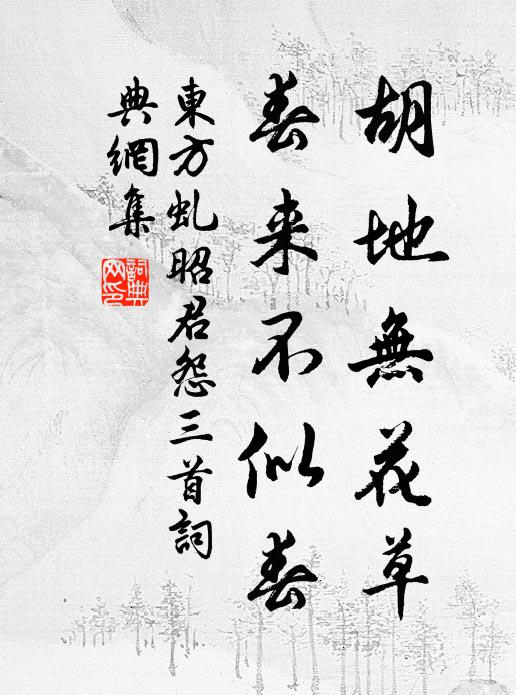 胡地無花草
春来不似春
東方虬昭君怨三首詞
典網集
詞典網印